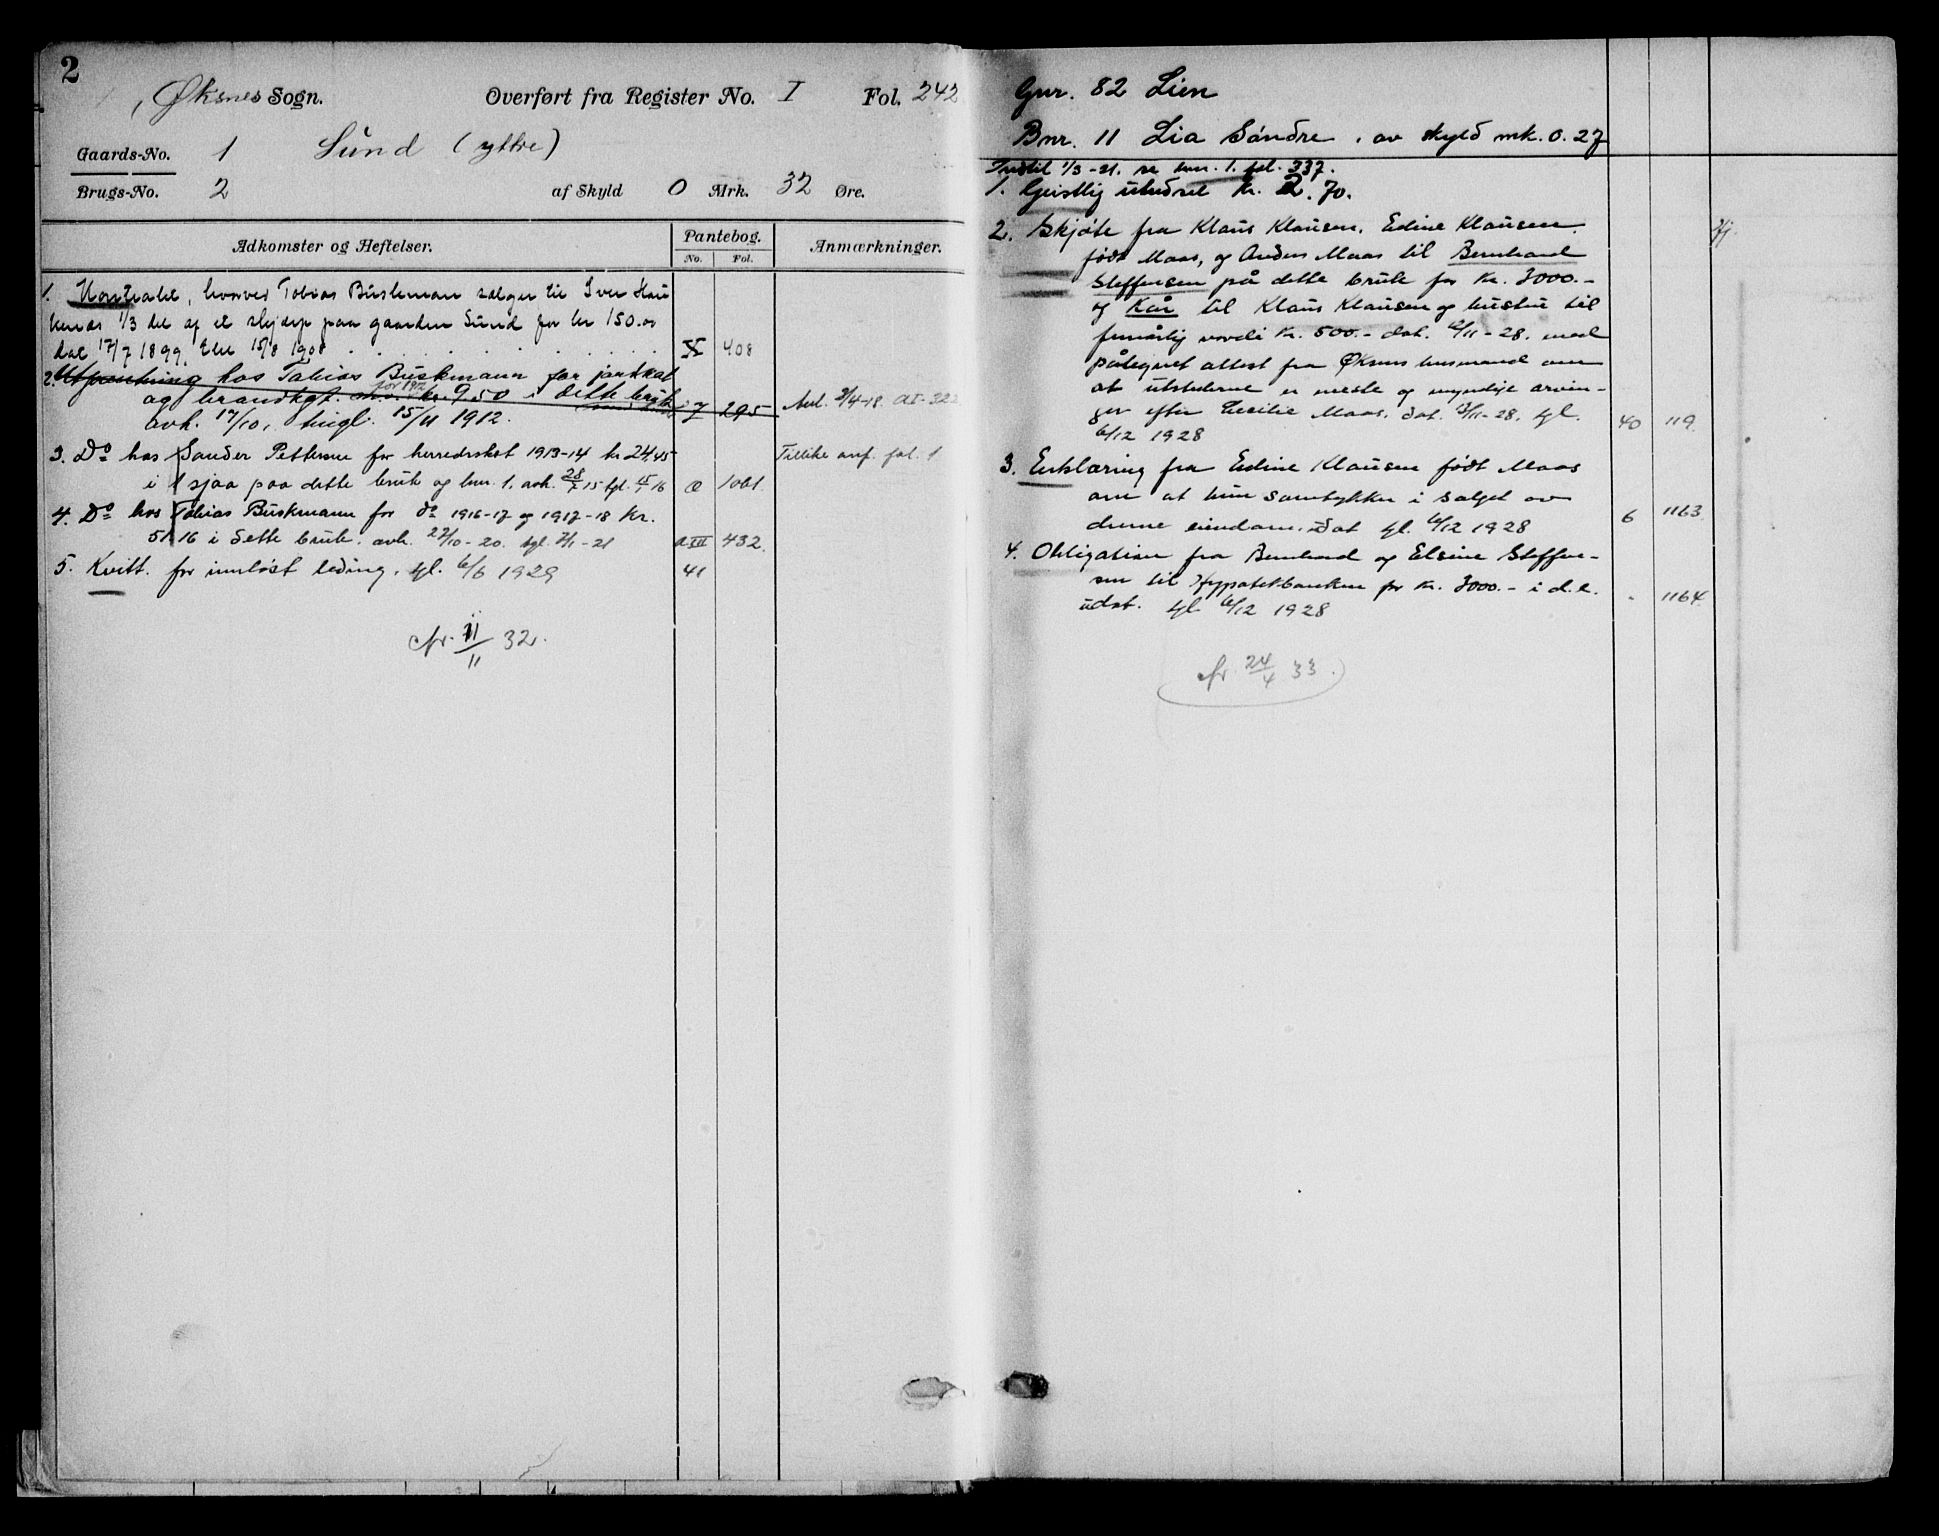 2
Øksnes Sogn. Overført fra Register No. I Fol. 242
Gaards-No. 1 Sund (yttre)
Brugs-No. 2 af Skyld 0 Mrk. 32 Øre.
Adkomster og Heftelser. Pantebog. Anmærkninger.
No. Fol.
1. Kontrakt, hvorved Tobias Buskman sælger til Iver Hau
kenæs 1/3 del af et skjæp paa gaarden Sund for kr 150.00
dat 17/7 1899. Tgl 15/8 1900 X 408
2. Utpantning hos Tobias Buskmann for jordskat
og brandkgt. for 1912 kr. 9.50 i dette bruk
avh. 17/10, tingl. 15/11 1912. 27 295 Avl. 3/4-18 A I-322
3. Do hos Sander Pettersen for herredsskat 1913-14 kr 24,45
i 1 sjaa paa dette bruk og bnr. 1. avh. 28/7 15 tgl. 15/1 16 a 1061 Tillike anf. fol. 1
4. Do hos Tobias Buskmann for do 1916-17 og 1917-18 Kr.
51.16 i dette bruk. avh. 27/10-20. tgl. 7/1-21 a III 432.
5. Kvitt. for innløst leding. tgl. 6/6 1929 41
cfr. 11/11 32.
Gnr. 82 Lien
Bnr. 11 Lia Søndre. av skyld mk. 0.27
Indtil 1/3-21. se bnr. 1. fol. 337.
1. Geistlig utædsel Kr. 2.70.
2. Skjøte fra Klaus Klausen. Edine Klausen
født Maas, og Anders Maas til Bernhard
Steffensen på dette bruk for Kr. 3000.-
og Kår til Klaus Klausen og hustru til
femårlig verdi Kr. 500.- dat. 12/11-28. med
påtegnet attest fra Øksnes lensmand om
at utstederne er eneste og myndige arvin-
ger efter Cecilie Maas. dat. 13/11-28. tgl.
6/12 1928 40 119.
3. Erklæring fra Edine Klausen født Maas
om at hun samtykker i salget av
denne eiendom. udat tgl. 6/12 1928 6 1163.
4. Obligation fra Bernhard og Elsine Steffen-
sen til Hypotekbanken for Kr. 3000.- i d.e.
udat. tgl. 6/12 1928 - 1164.
cfr. 24/4 33.